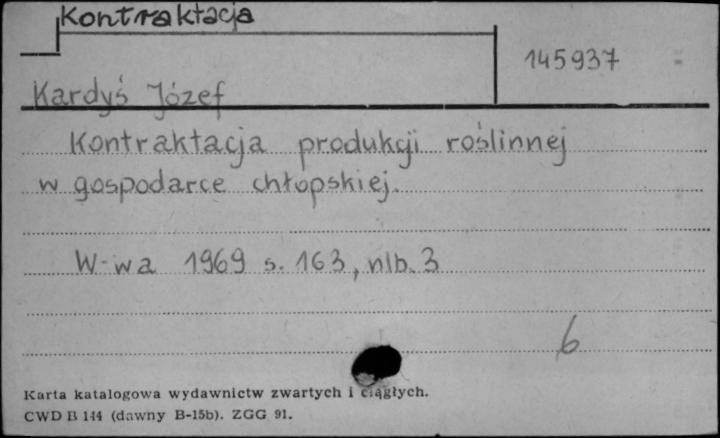 Kontraktacja
145937
Kardyś Józef
Kontraktacja produkcji roślinnej
w gospodarce chłopskiej.
W-wa 1969 s. 163, nlb. 3
6
Karta katalogowa wydawnictw zwartych i ciągłych.
CWD B 144 (dawny B-15b). ZGG 91.